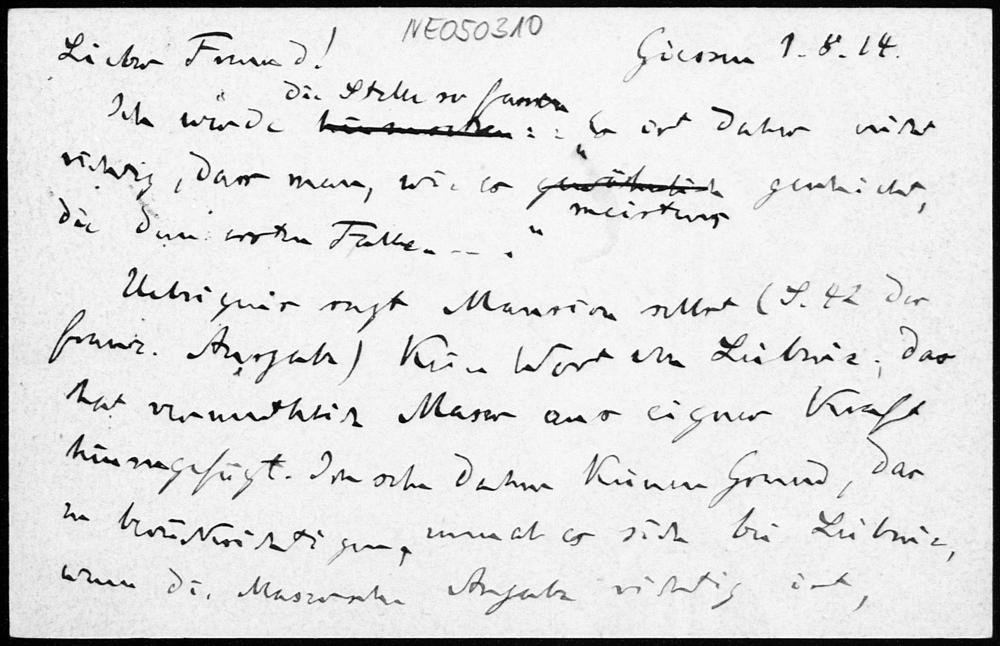 NE050310
Lieber Freund! Giessen 1.8.14.
die Stelle so fassen
Ich würde hinzusetzen: : "Es ist daher nicht
richtig, dass man, wie es gewöhnlich geschieht,
meistens
die drei ersten Fälle - - . "
Uebrigens sagt Mansion selbst (S. 42 der
franz. Ausgabe) Kein Wort von Leibniz; das
hat vermuthlich Maser aus eigner Kraft
hinzugefügt. Ich sehe daher Keinen Grund, das
zu berücksichtigen, zumal es sich bei Leibniz,
wenn die Masersche Angabe richtig ist,